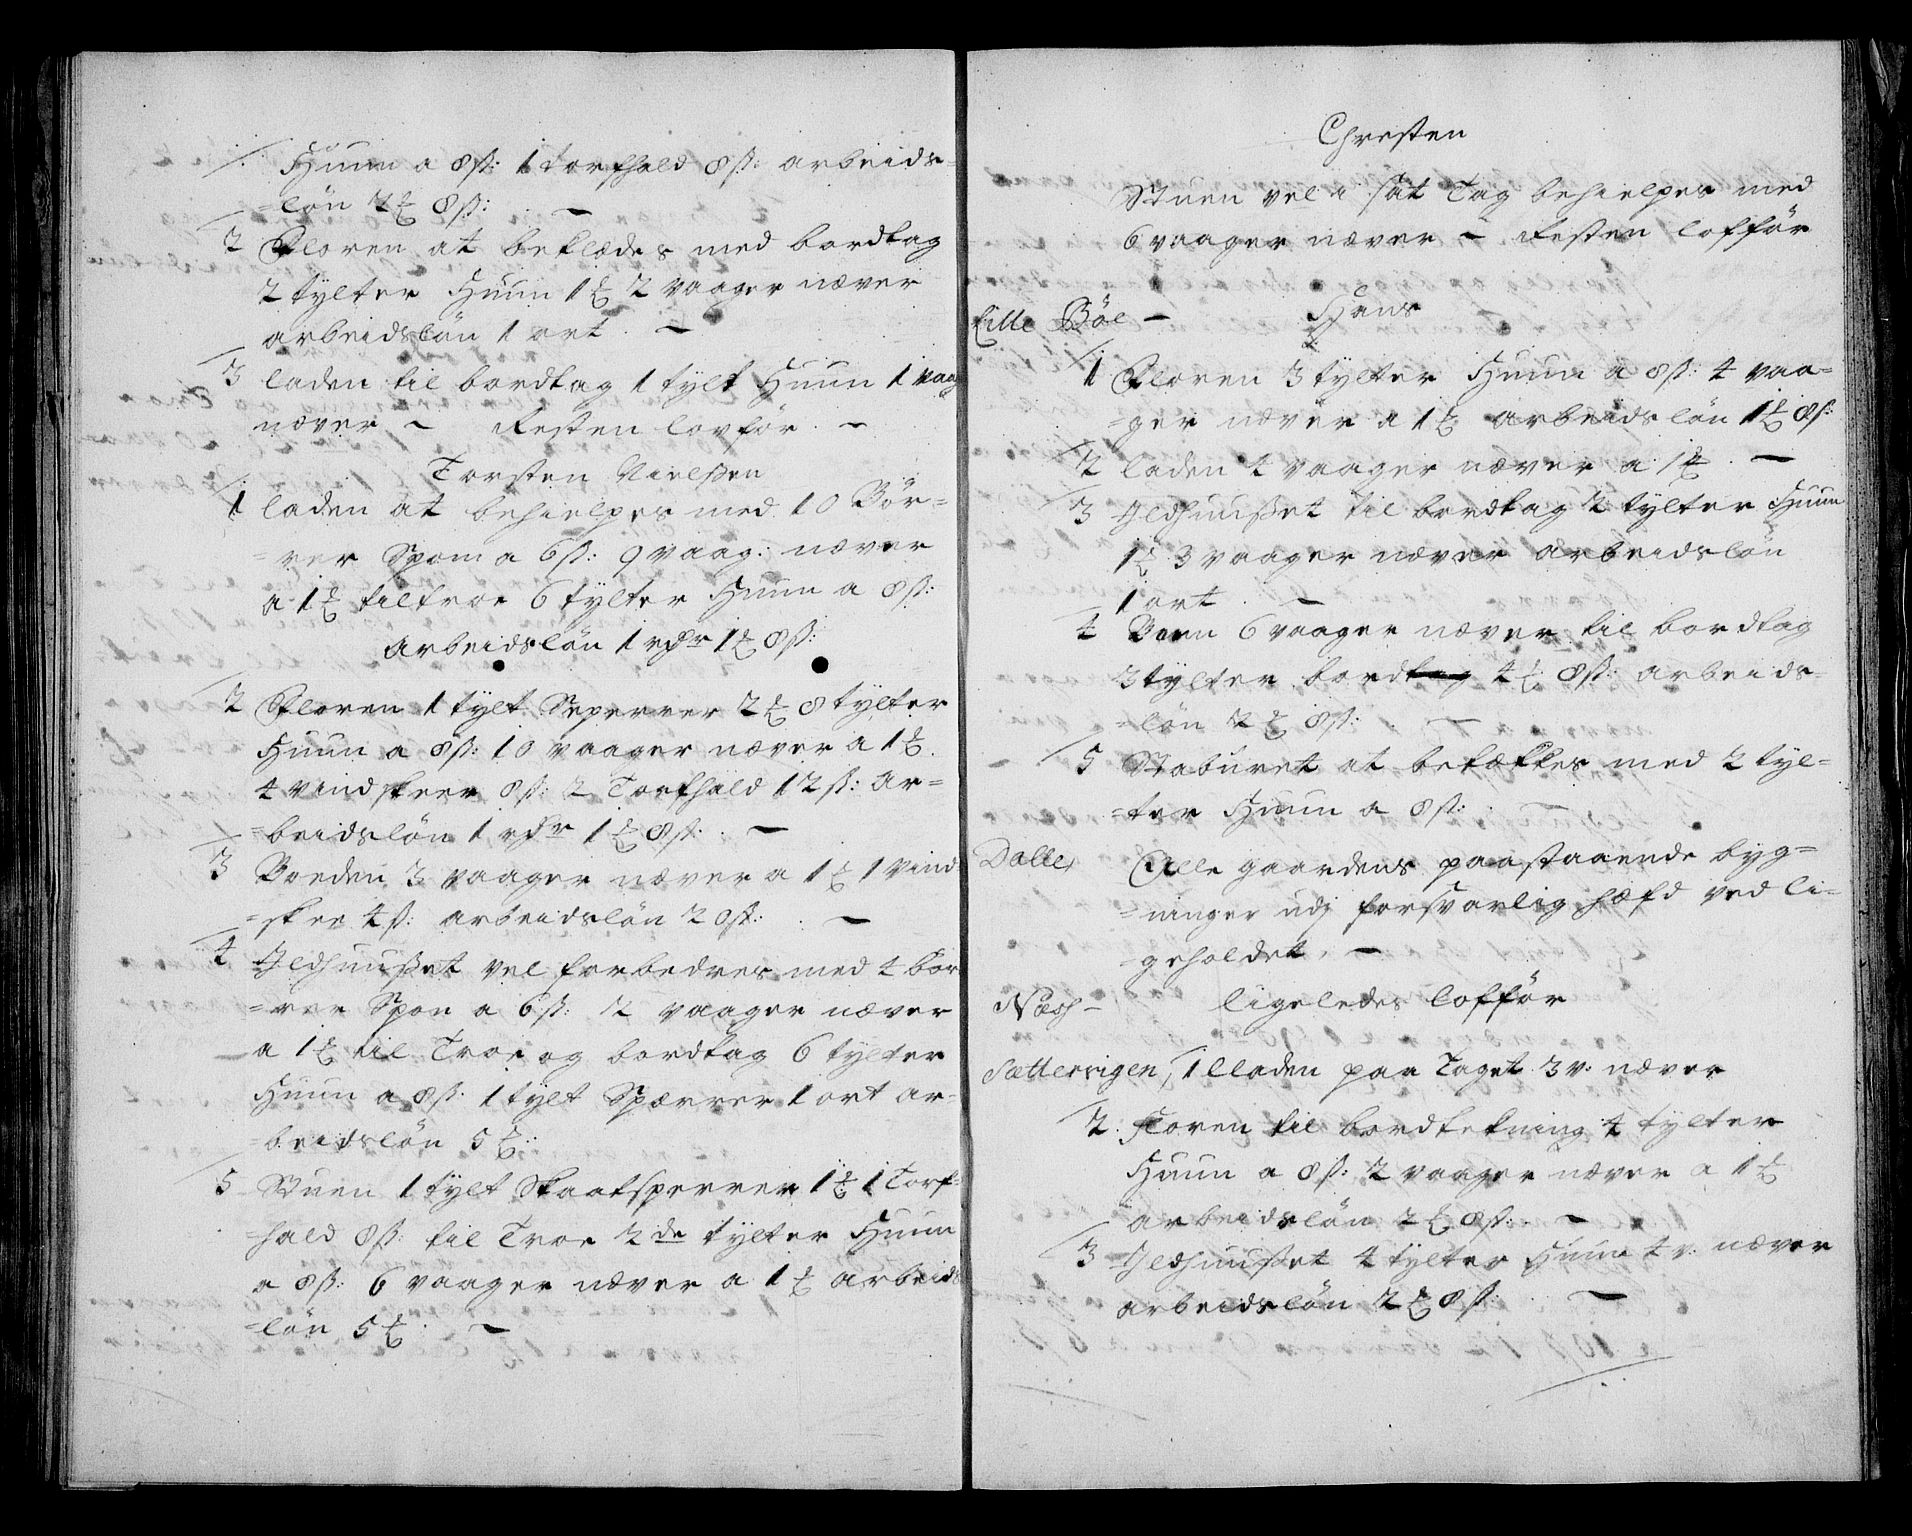 Huun a 8ß: 1 torfhald 8ß: arbeids-
=løn 2 ℔ 8ß: —
2 Floren at beklædes med bordtag
2 tylter Huun 1 ℔ 2 vaager næver
arbeidsløn 1 ort. —
3 laden til bordtag 1 tylt Huun 1 vaag
næver — Resten lovför. —
Torsten Nielßen
1 laden at behielpes med 10 Bör-
=rer Spom a 6ß: 9 vaag: næver
a 1 ℔ til troe 6 tylter Huun a 8ß:
arbeidsløn 1 rdr 1 ℔ 8ß:
2 Floren 1 tylt Sperrer 2 ℔ 8 tylter
Huun a 8ß: 10 vaager næver a 1 ℔.
4 vindskeer 8ß: 2 Torfhald 12ß: ar=
=beidsløn 1 rdr 1 ℔ 8ß: . —
3 Boeden 3 vaager næver a 1 ℔ 1 vind
=skee 4ß: arbeidsløn 20ß: . —
4 Ildhuußet vel forbedres med 4 bör
=rer Spon a 6ß: 2 vaager næver
a 1 ℔ til Troe og bordtag 6 tylter
Huun a 8ß: 1 tylt Spærrer 1 ort ar-
=beidsløn 5 ℔:
5 Stuen 1 tylt Skaatsperrer 1 ℔ 1 Torf=
=hald 8ß: til Troe 2de tylter Huun
a 8ß: 6 vaager næver a 1 ℔ arbeids
=løn 5 ℔. —
Chresten
Stuen vel i sat Tag behielpes med
6 vaager næver — Resten lofför
Lille Böe — Hans
1 Floren 3 tylter Huun a 8ß: 4 vaa=
=ger næver a 1 ℔ arbeidsløn 1 ℔ 8ß:
2 laden 4 vaager næver a 1 ℔. —
3 Ildhuußet til bordtag 2 tylter Huun
1 ℔ 3 vaager næver arbeidsløn
1 ort. —
4 Boen 6 vaager næver til bordtag
3 tylter bordtag 4 ℔ 8ß: arbeids-
=løn 2 ℔ 8ß: —
5 Staburet at betækkes med 2 tyl=
=ter Huun a 8ß:
Dalle, Alle gaardens paastaaende byg=
=ninger udj forsvarlig hæfd ved li=
geholdet. —
Næss — ligeledes lofför
Sætterrigen, 1 lladen paa Taget 3 v: næver
2. Floren til bordtekning 4 tylter
Huun a 8ß: 2 vaager næver a 1 ℔
arbeidsløn 2 ℔ 8ß: —
3 Ildhuußet 4 tylter Huun 4 v: næver
arbeidsløn 2 ℔ 8ß: —